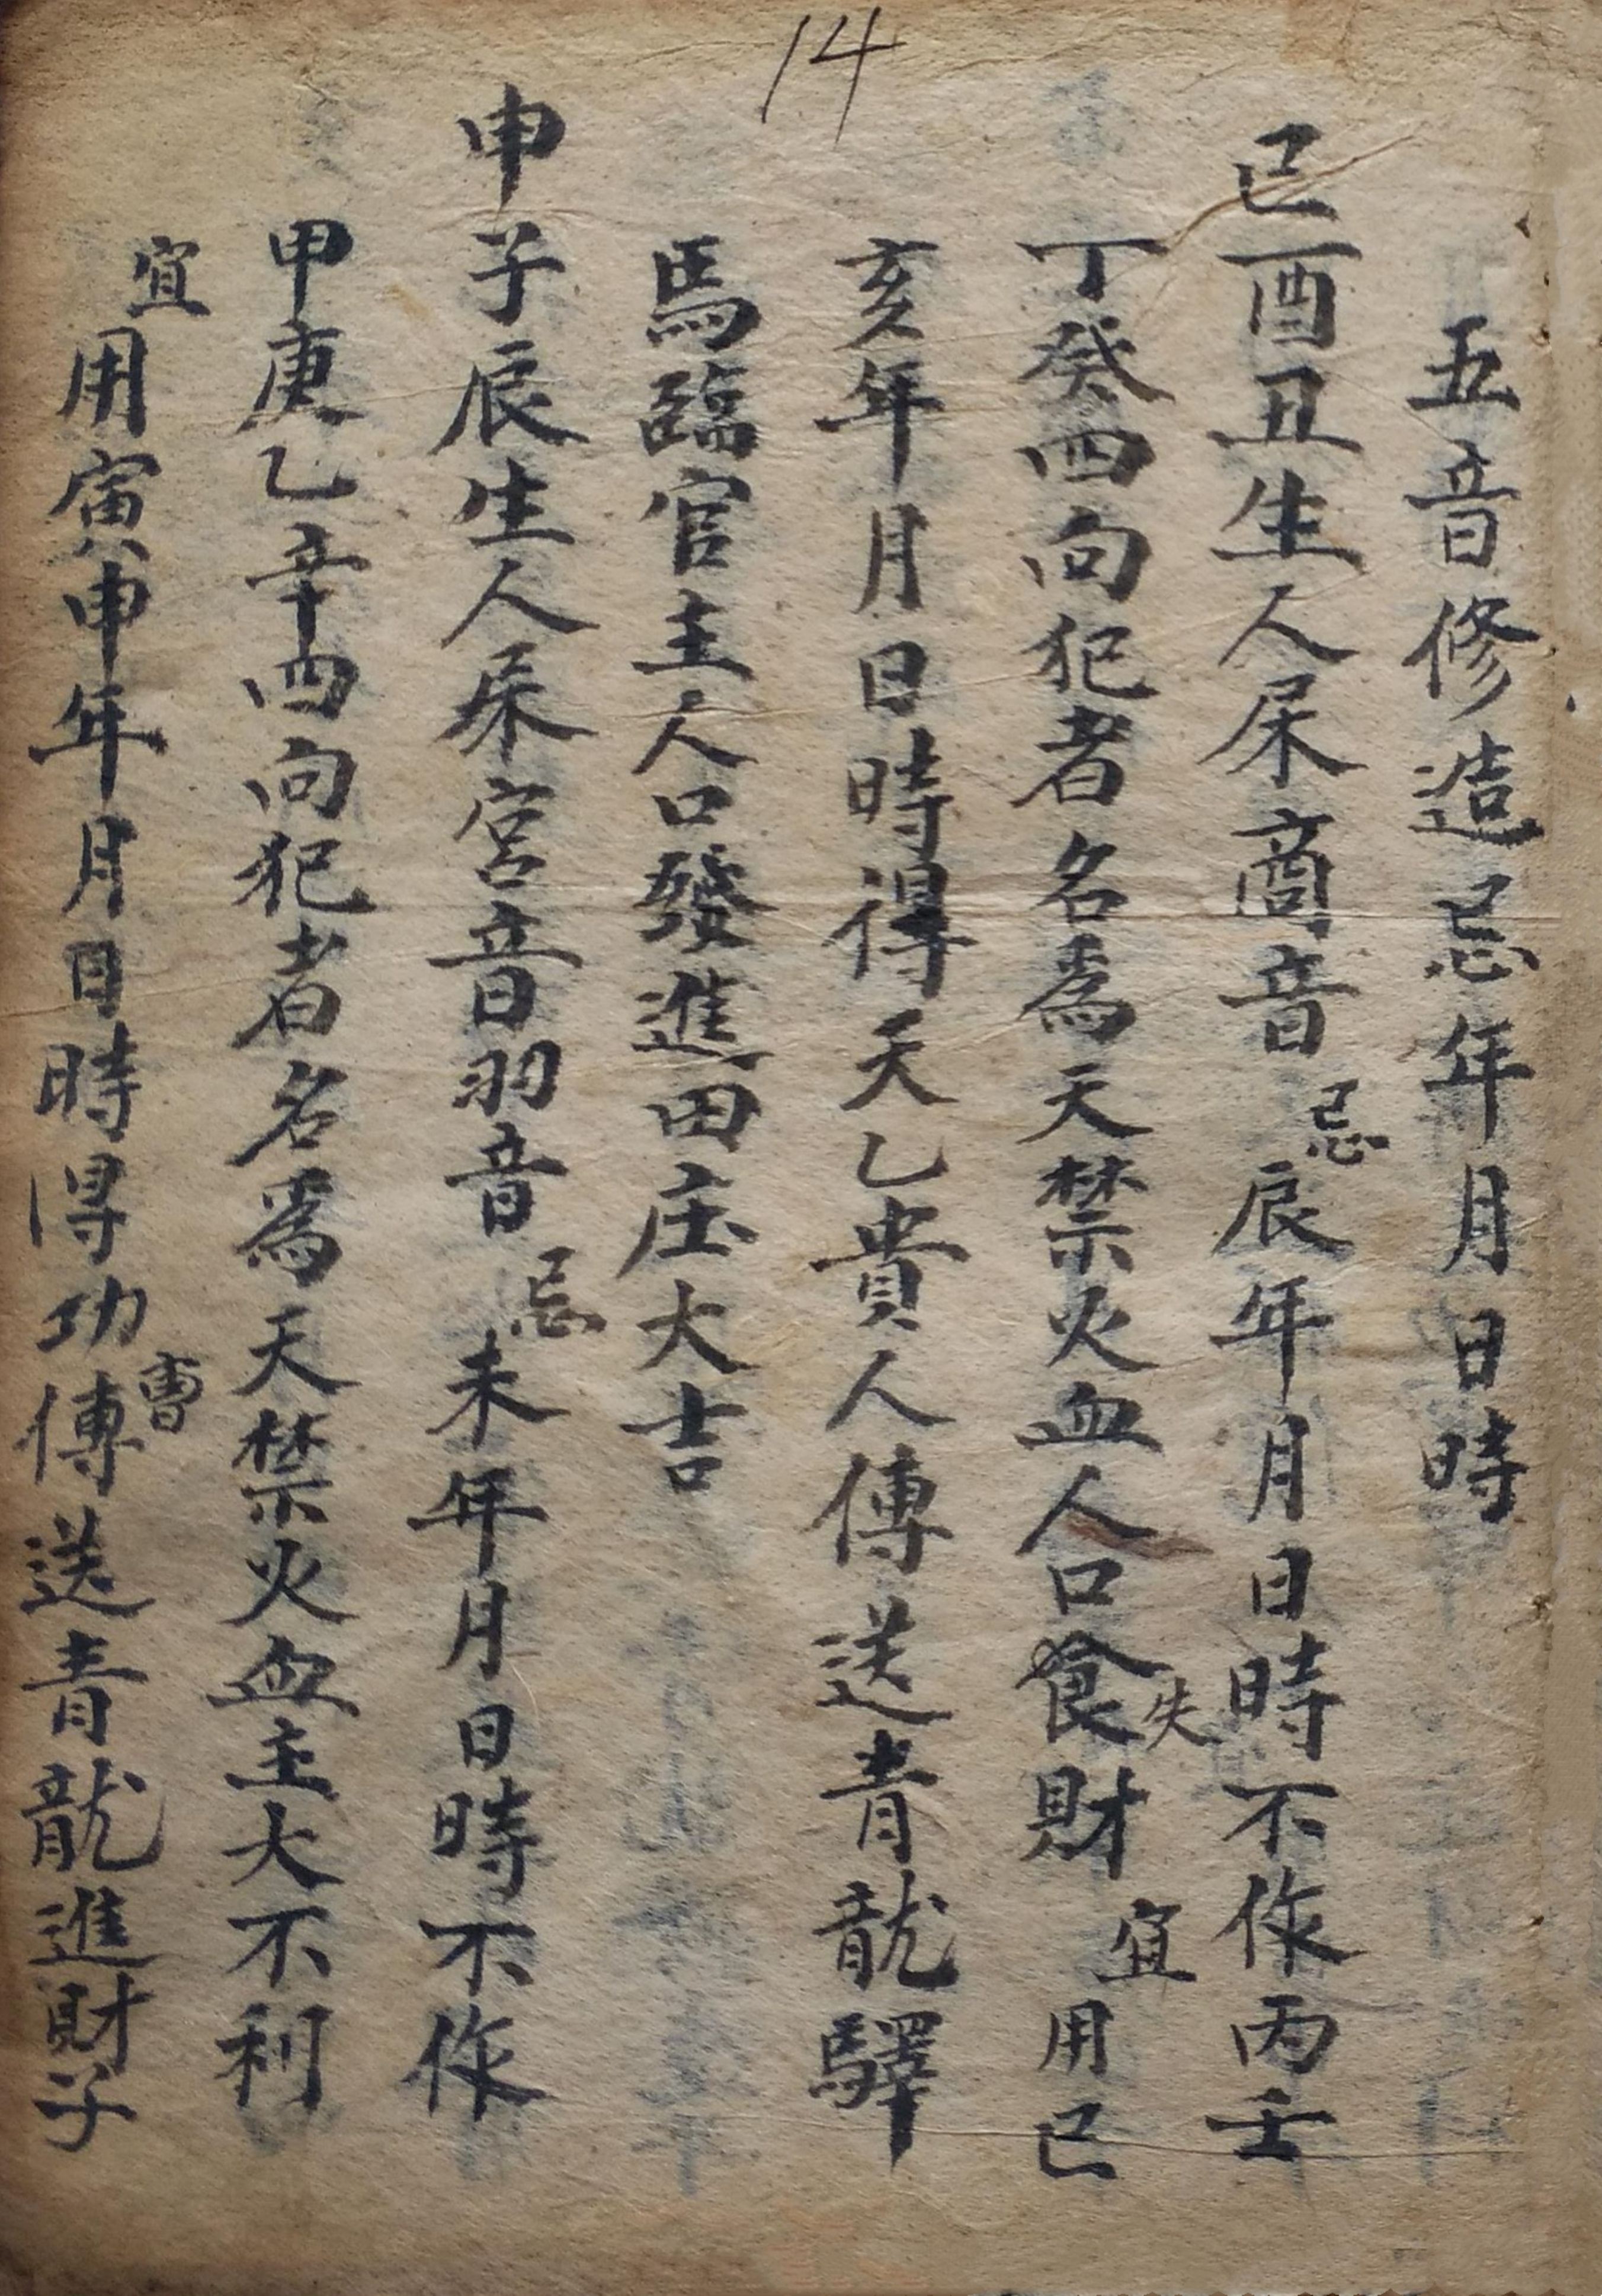 14
五音修造忌年月日時
巳酉丑生人屎商音忌辰年月日時不作丙壬
丁癸四向犯者名為天禁火血人口食失財宜用巳
亥年月日時得天乙貴人傳送青龍驛
馬臨官主人口發進田庄大吉
申子辰生人屎宮音羽音忌未年月日時不作
甲庚乙辛四向犯者名為天禁火血主大不利
宜用寅申年月日時得功曹傳送青龍進財子